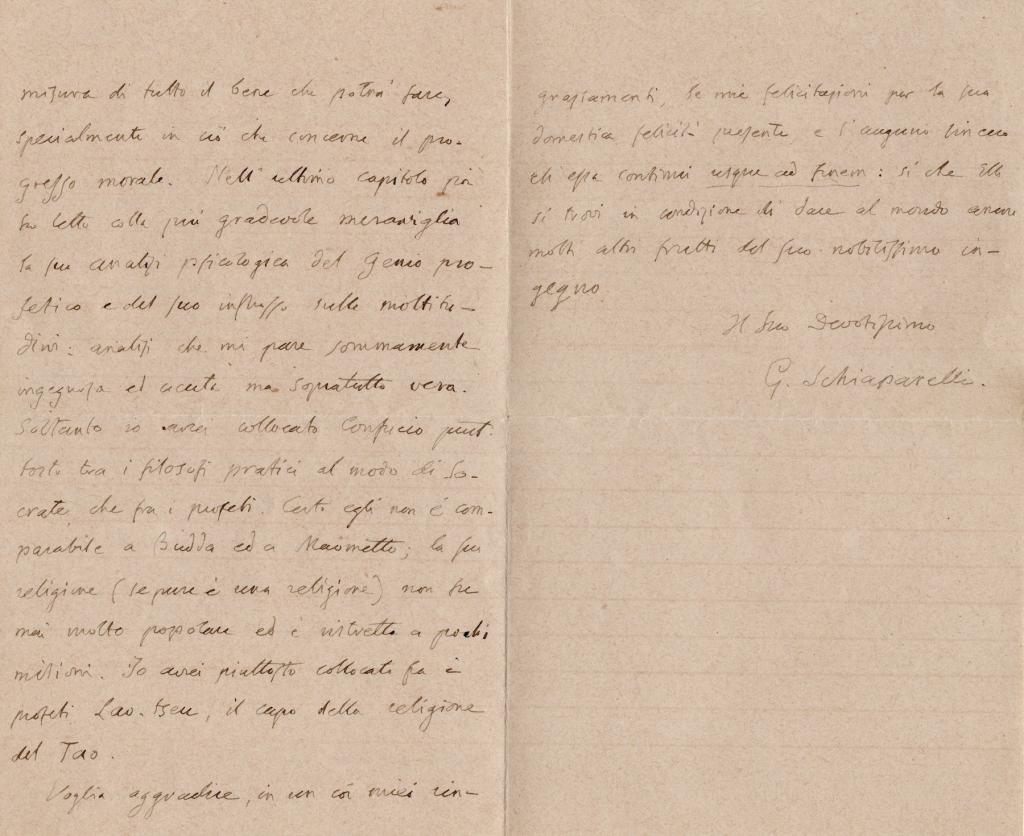 misura di tutto il bene che potrà fare,
specialmente in ciò che concerne il pro-
gresso morale. Nell' ultimo capitolo poi
ho letto colla più gradevole meraviglia
la sua analisi psicologica del Genio pro-
fetico e del suo influsso sulle moltitu-
dini: analisi che mi pare sommamente
ingegnosa ed acuta ma sopratutto vera.
Soltanto io avrei collocato Confucio piut-
tosto tra i filosofi pratici al modo di So-
crate che fra i profeti. Certo egli non è com-
parabile a Budda ed a Maometto; la sua
religione (se pure è una religione) non fu
mai molto popolare ed è ristretta a pochi
milioni. Io avrei piuttosto collocato fra i
profeti Lao-tseu, il capo della religione
del Tao.
Voglia aggradire, in un coi miei rin-
graziamenti, le mie felicitazioni per la sua
domestica felicità presente, e l'augurio sincero
che essa continui usque ad finem: sì che Ella
si trovi in condizione di dare al mondo ancora
molti altri frutti del suo nobilissimo in-
gegno.
Il Suo Devotissimo
G. Schiaparelli.